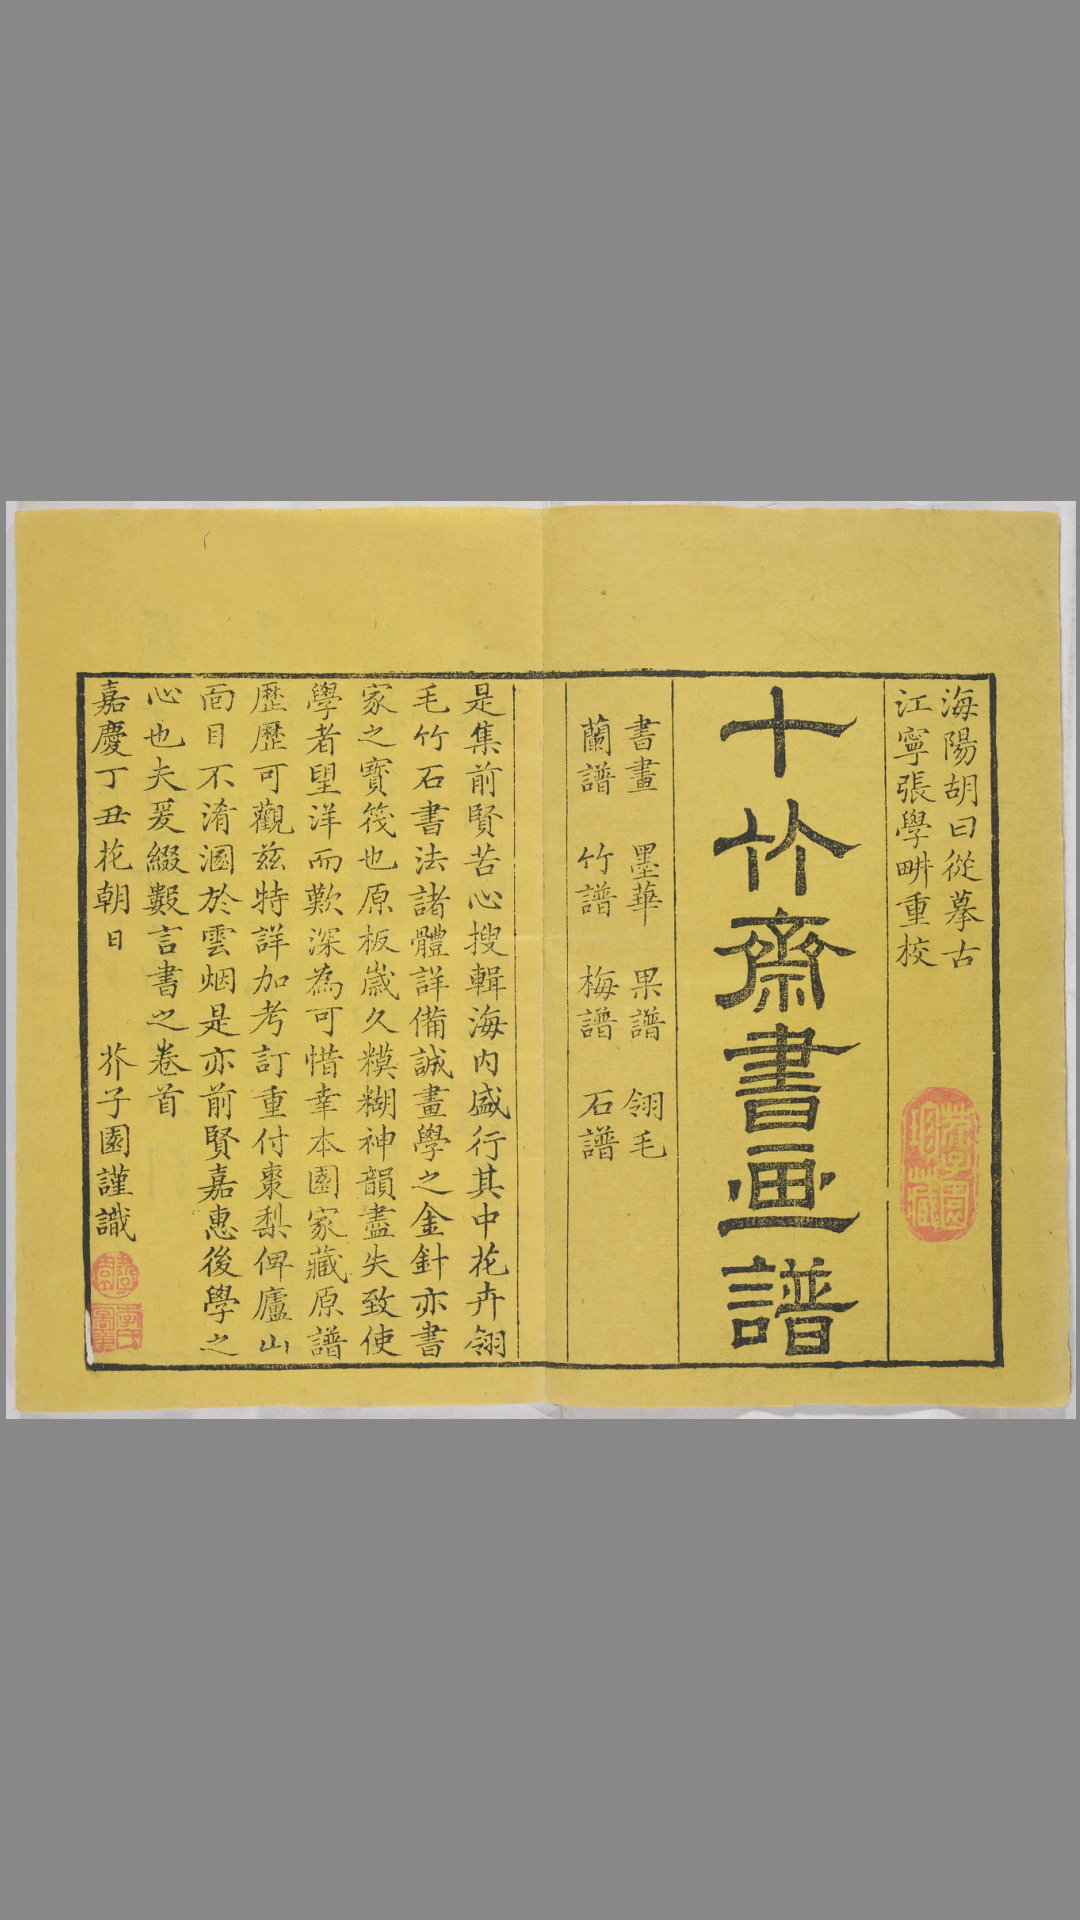 海陽胡曰從摹古
江寧張學畊重校
十竹齋書画譜
書畫 墨華 果譜 翎毛
蘭譜 竹譜 梅譜 石譜
是集前賢苦心搜輯海内盛行其中花卉翎
毛竹石書法諸體詳備誠畫學之金針亦書
家之寶筏也原板歲久糢糊神韻盡失致使
學者望洋而歎深為可惜幸本園家藏原譜
歷歷可觀茲特詳加考訂重付棗梨俾廬山
面目不淆溷於雲烟是亦前賢嘉惠後學之
心也夫爰綴數言書之卷首
嘉慶丁丑花朝日 芥子園謹識
芥子園
珍藏